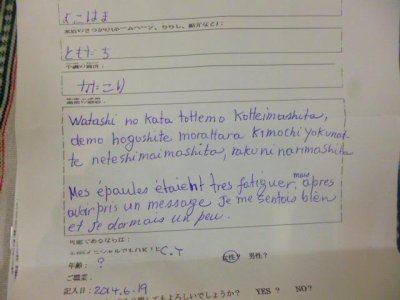 よこはま
ともだち
かたこり
Watashi no kata tottemo kotteimashita,
demo hogushite morattara kimochi yokunat-
te neteshimaimashita, rakuni narimashita
Mes épaules étaient tres fatiguer, mais apres
avoir pris un message Je me sentais bien
et Je dormais un peu.
可能であるならば:
C.Y
年齢: ? 女性? 男性?
ご職業:
記入日: 2014.6.19
してもよろしいでしょうか? YES? NO?